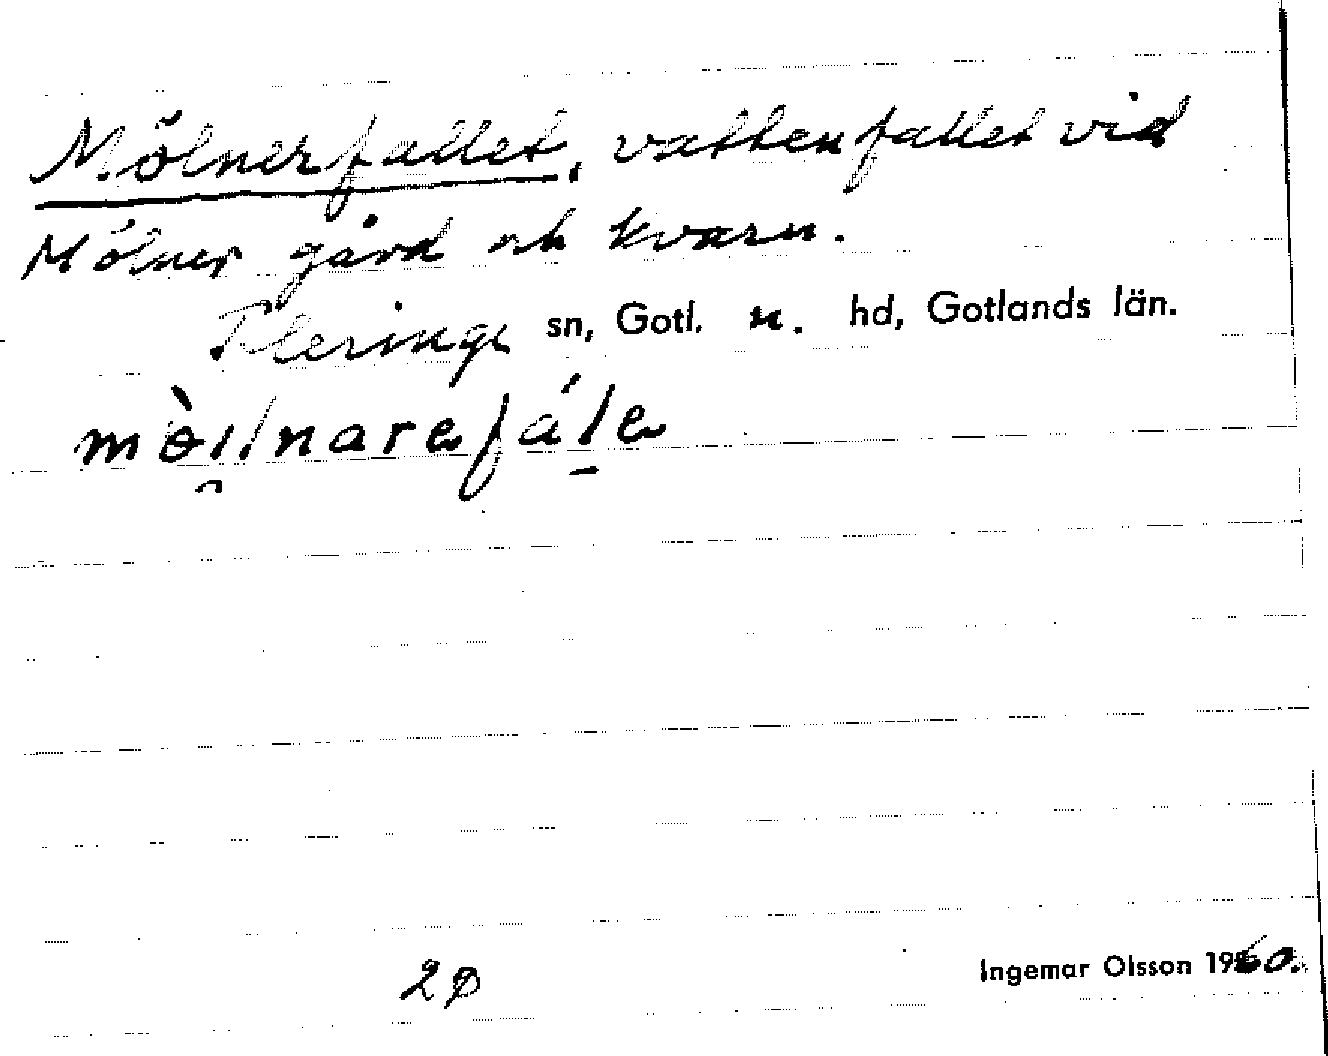 Mölnerfallet, vattenfallet vid
Mölner gård och kvarn.
Fleringe sn, Gotl. n. hd, Gotlands län.
Ingemar Olsson 1960.